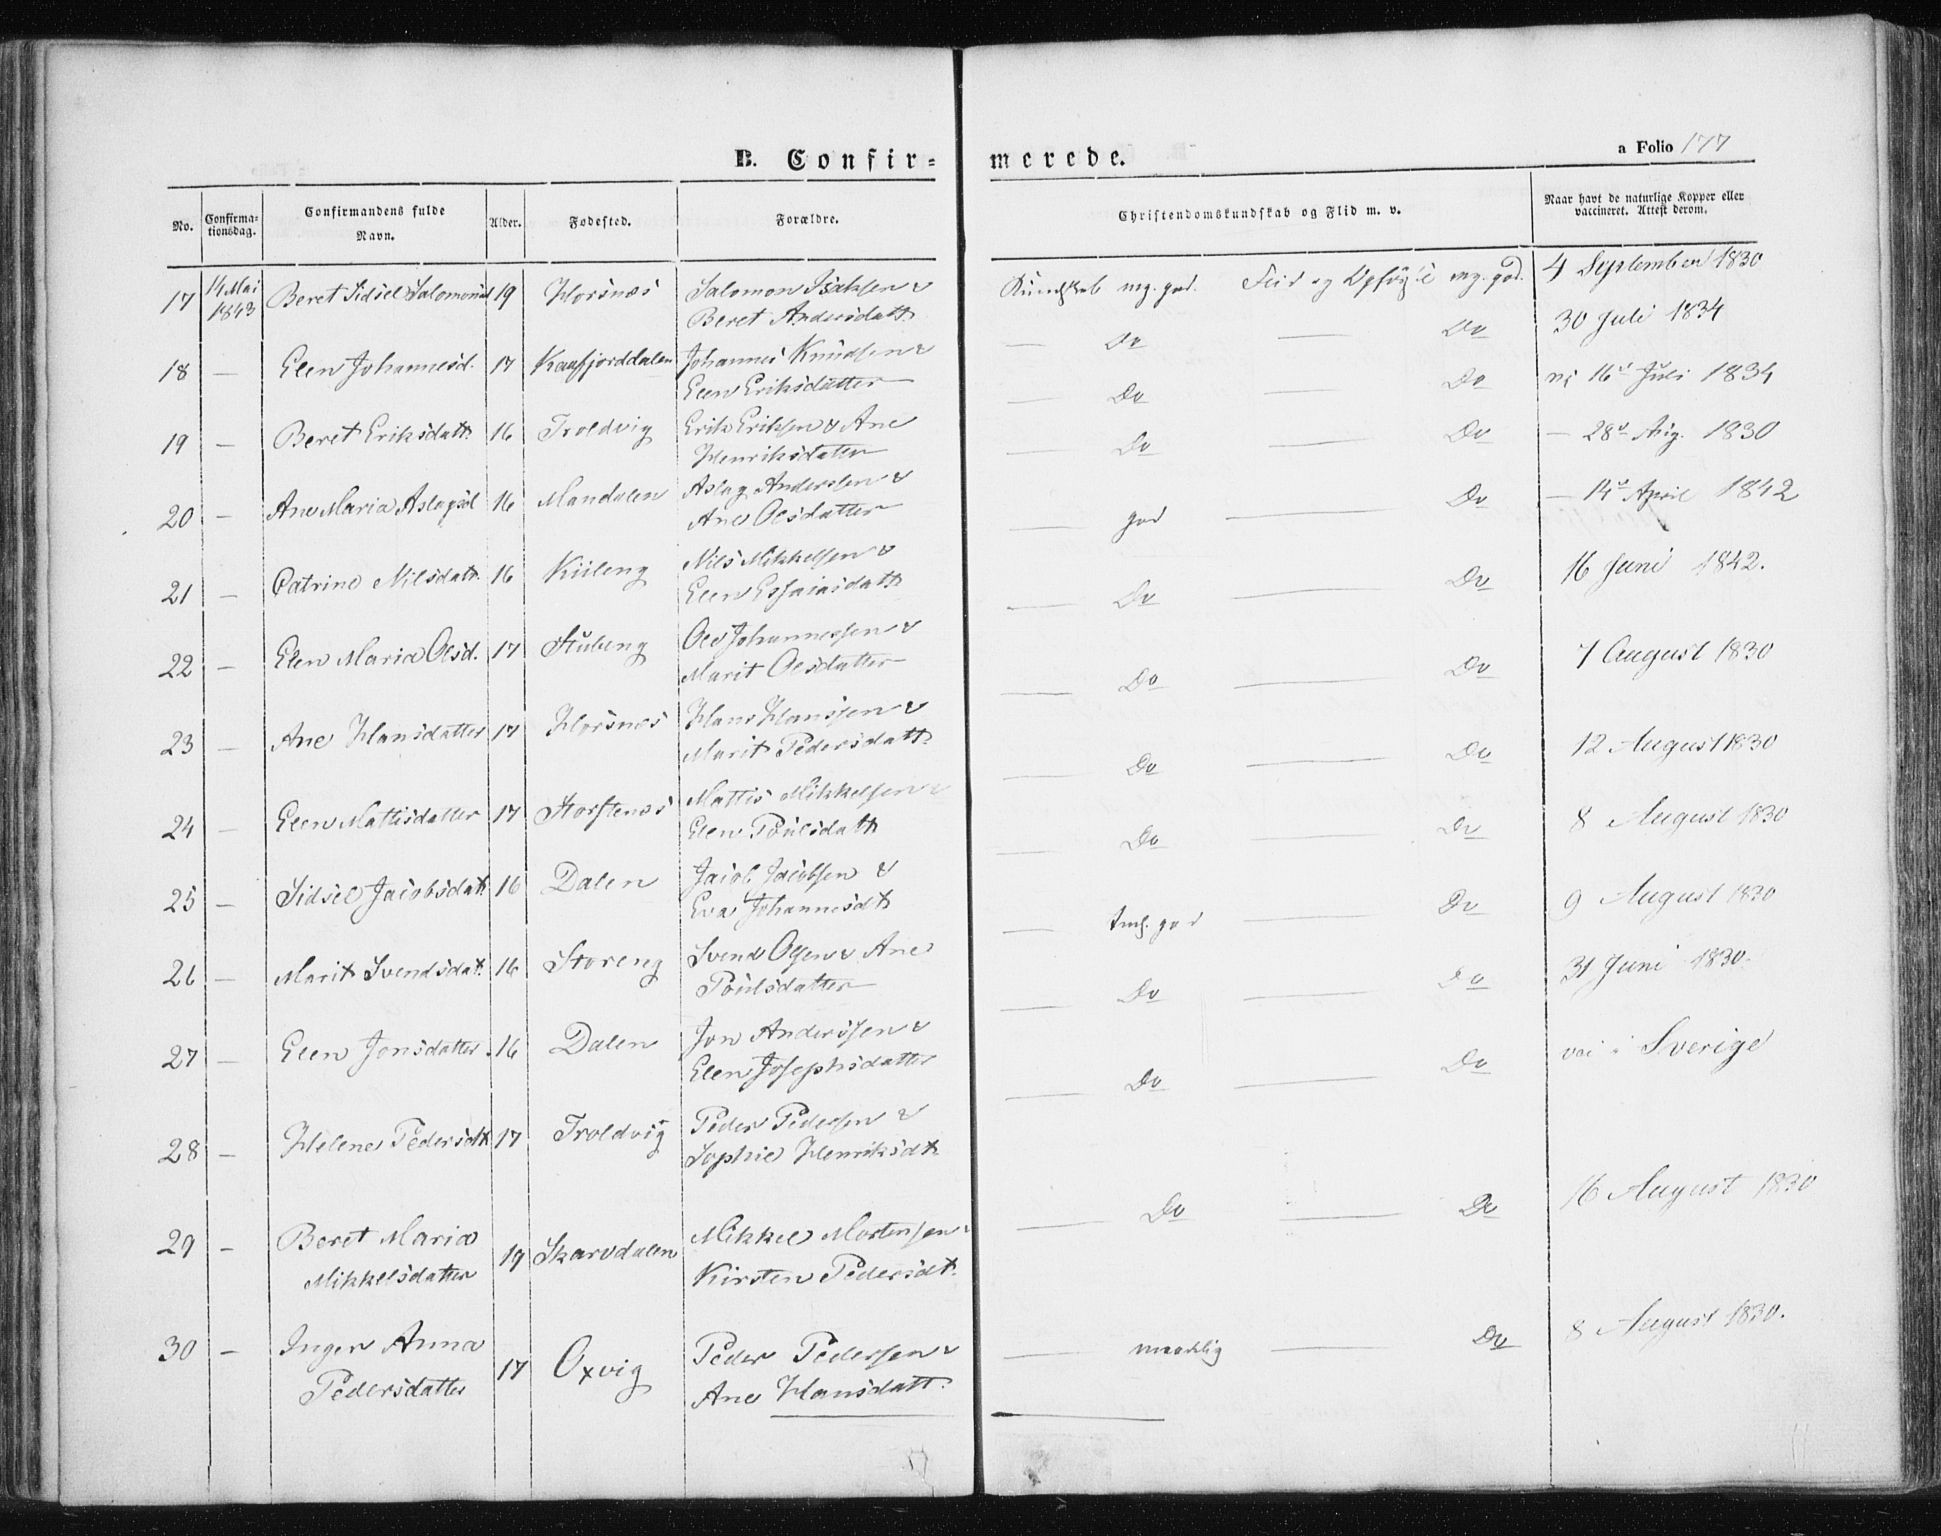 B. Confir=
merede.
a Folio 177
No.
Confirma-
tionsdag.
Confirmandens fulde
Navn.
Alder.
Fødested.
Forældre.
Christendomskundskab og Flid m. v.
Naar havt de naturlige Kopper eller
vaccineret. Attest derom.
17 14 Mai 1843 Beret Sidsel Salomonsd 19 Horsnæs Salomon Isaksen &
Beret Andersdatt.
Kundskab mg. god. Flid og mg. god. 4 September 1830
18 — Elen Johannesd. 17 Kaafjorddalen Johannes Knudsen &
Elen Eriksdatter
— Do — Do 30 Juli 1834
19 — Beret Eriksdatt. 16 Troldvig Erik Eriksen & Ane
Henriksdatter
— Do — Do 16 Juli 1834
20 — Ane Maria Aslagsd 16 Mandalen Aslag Anderssen &
Ane Olsdatter
— Do — Do — 28 Aug. 1830
21 — Catrine Nilsdatr. 16 Kiileng Nils Mikkelsen &
Elen Essaiasdatt.
— god — Do — 14 April 1842
22 — Elen Maria Olsd. 17 Stubeng Ole Johannessen &
Marit Olsdatter
— Do — Do 16 Juni 1842.
23 — Ane Hansdatter 17 Horsnæs Hans Hanssen &
Marit Pedersdatt.
— Do — Do 7 August 1830
24 — Elen Mattisdatter 17 Storstenæs Mattis Mikkelsen &
Elen Poulsdatt
— Do — Do 12 August 1830
25 — Sidsel Jacobsdatt 16 Dalen Jacob Jacobsen &
Eva Johannesdt
— Do — Do 8 August 1830
26 — Marit Svendsdat. 16 Storeng Svend Olsen & Ane
Poulsdatter
— god — Do 9 August 1830
27 — Elen Jonsdatter 16 Dalen Jon Anderssen &
Elen Josephsdatter
— Do — Do 31 Juni 1830.
28 — Helene Pedersdt. 17 Troldvig Peder Pedersen &
Sophie Henriksdt.
— Do — Do i Sverige
29 — Beret Maria
Mikkelsdatter 19 Skarvdalen Mikkel Mortensen &
Kirsten Pedersdt.
— Do — Do 16 August 1830
30 — Inger Anna
Pedersdatter 17 Oxvig Peder Pedersen &
Ane Hansdatt.
— maadelig — Do 8 August 1830.